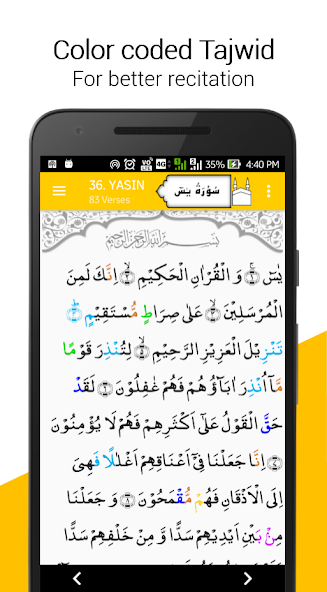 Color coded Tajwid
For better recitation
35% 4:40 PM
36. YASIN
83 Verses
سُوْرَةُ يٰسٓ
بِسْمِ اللّٰهِ الرَّحْمٰنِ الرَّحِيْمِ
يٰسٓ ۝١ وَ الْقُرْاٰنِ الْحَكِيْمِ ۝٢ اِنَّكَ لَمِنَ
الْمُرْسَلِيْنَ ۝٣ عَلٰى صِرَاطٍ مُّسْتَقِيْمٍ ۝٤
تَنْزِيْلَ الْعَزِيْزِ الرَّحِيْمِ ۝٥ لِتُنْذِرَ قَوْمًا
مَّاۤ اُنْذِرَ اٰبَآؤُهُمْ فَهُمْ غٰفِلُوْنَ ۝٦ لَقَدْ
حَقَّ الْقَوْلُ عَلٰۤى اَكْثَرِهِمْ فَهُمْ لَا يُؤْمِنُوْنَ
۝٧ اِنَّا جَعَلْنَا فِيْۤ اَعْنَاقِهِمْ اَغْلٰلًا فَهِىَ
اِلَى الْاَذْقَانِ فَهُمْ مُّقْمَحُوْنَ ۝٨ وَ جَعَلْنَا
مِنْۢ بَيْنِ اَيْدِيْهِمْ سَدًّا وَّ مِنْ خَلْفِهِمْ سَدًّا